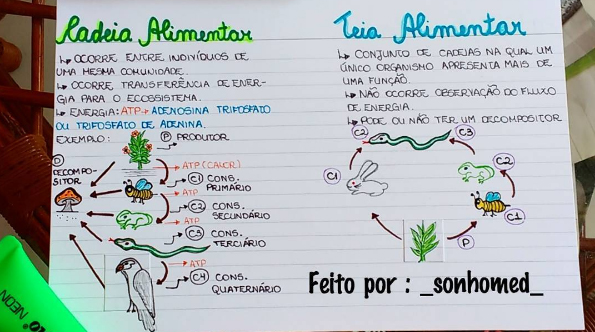 Cadeia Alimentar
↳ OCORRE ENTRE INDIVÍDUOS DE
UMA MESMA COMUNIDADE.
↳ OCORRE TRANSFERÊNCIA DE ENER-
GIA PARA O ECOSSISTEMA.
↳ ENERGIA: ATP → ADENOSINA TRIFOSFATO
OU TRIFOSFATO DE ADENINA.
EXEMPLO:
P PRODUTOR
D
DECOMPO-
SITOR
ATP (CALOR)
C1 CONS.
PRIMÁRIO
ATP
C2 CONS.
SECUNDÁRIO
ATP
C3 CONS.
TERCIÁRIO
ATP
C4 CONS.
QUATERNÁRIO
Teia Alimentar
↳ CONJUNTO DE CADEIAS NA QUAL UM
ÚNICO ORGANISMO APRESENTA MAIS DE
UMA FUNÇÃO.
↳ NÃO OCORRE OBSERVAÇÃO DO FLUXO
DE ENERGIA.
↳ PODE OU NÃO TER UM DECOMPOSITOR
C2
C3
C1
C2
C1
P
Feito por : _sonhomed_
NEON